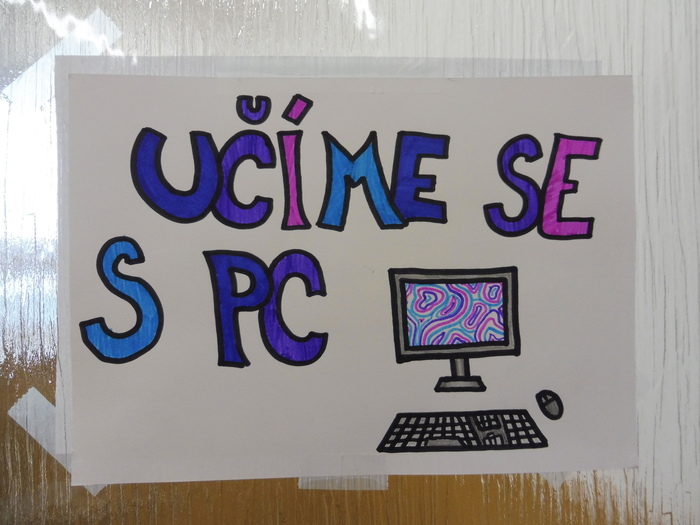 UČÍME SE
S PC